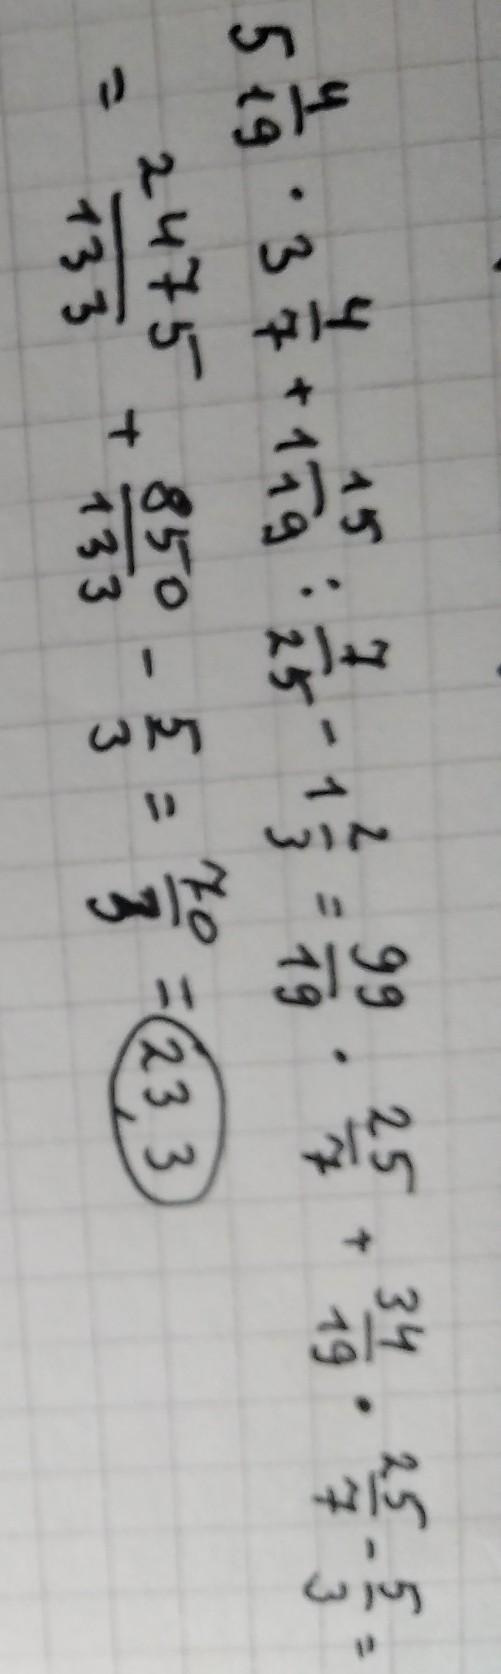 5 4/19 · 3 4/7 + 1 15/19 : 7/25 - 1 2/3 = 99/19 · 25/7 + 34/19 · 25/7 - 5/3 =
= 2475/133 + 850/133 - 5/3 = 70/3 = 23,3